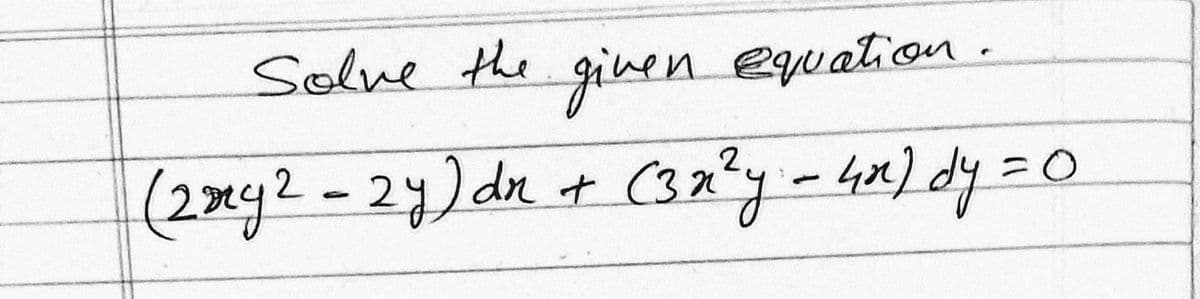 Solve the given equation.
(2xy² - 2y) dx + (3x²y - 4x) dy = 0